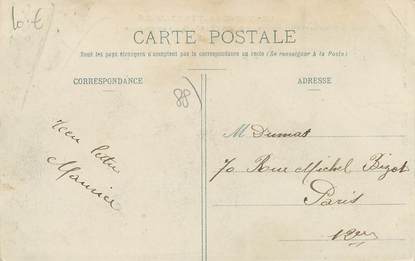 10.€
CARTE POSTALE
Tous les pays étrangers n'acceptent pas la correspondance au recto (Se renseigner à la Poste)
CORRESPONDANCE
ADRESSE
88)
lettre
Maurice
M Dumas
70 Rue Michel Bizot
Paris
12e